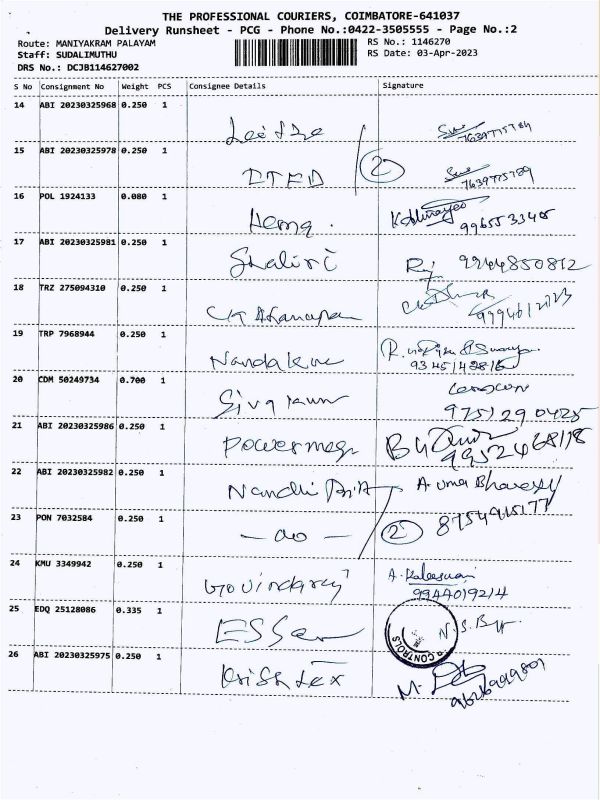 THE PROFESSIONAL COURIERS, COIMBATORE-641037
Delivery Runsheet - PCG - Phone No.:0422-3505555 - Page No.:2
Route: MANIYAKRAM PALAYAM
RS No.: 1146270
Staff: SUDALIMUTHU
RS Date: 03-Apr-2023
DRS No.: DCJB114627002
S No Consignment No Weight PCS Consignee Details Signature
14 ABI 20230325968 0.250 1
15 ABI 20230325978 0.250 1 2
16 POL 1924133 0.080 1 Hema.
17 ABI 20230325981 0.250 1 Shalini 9944850812
18 TRZ 275094310 0.250 1
19 TRP 7968944 0.250 1 Nandakum
9345142816
20 CDM 50249734 0.700 1 Sivakum
9751290425
21 ABI 20230325986 0.250 1 Powermega
22 ABI 20230325982 0.250 1 Nandhi A. Uma
23 PON 7032584 0.250 1 - do - 2
24 KMU 3349942 0.250 1 Govindaraj
9944019214
25 EDQ 25128086 0.335 1 Essar CONTROLS
26 ABI 20230325975 0.250 1 Krish Tex